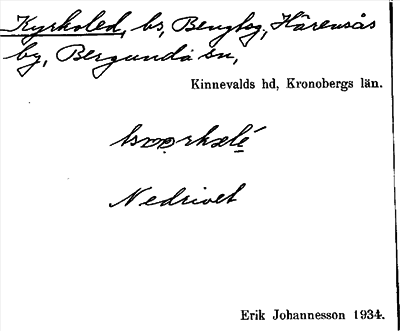 Kyrkoled, bs, Bengtsg, Härensås
by, Bergunda sn,
Kinnevalds hd, Kronobergs län.
Nedrivet
Erik Johannesson 1934.